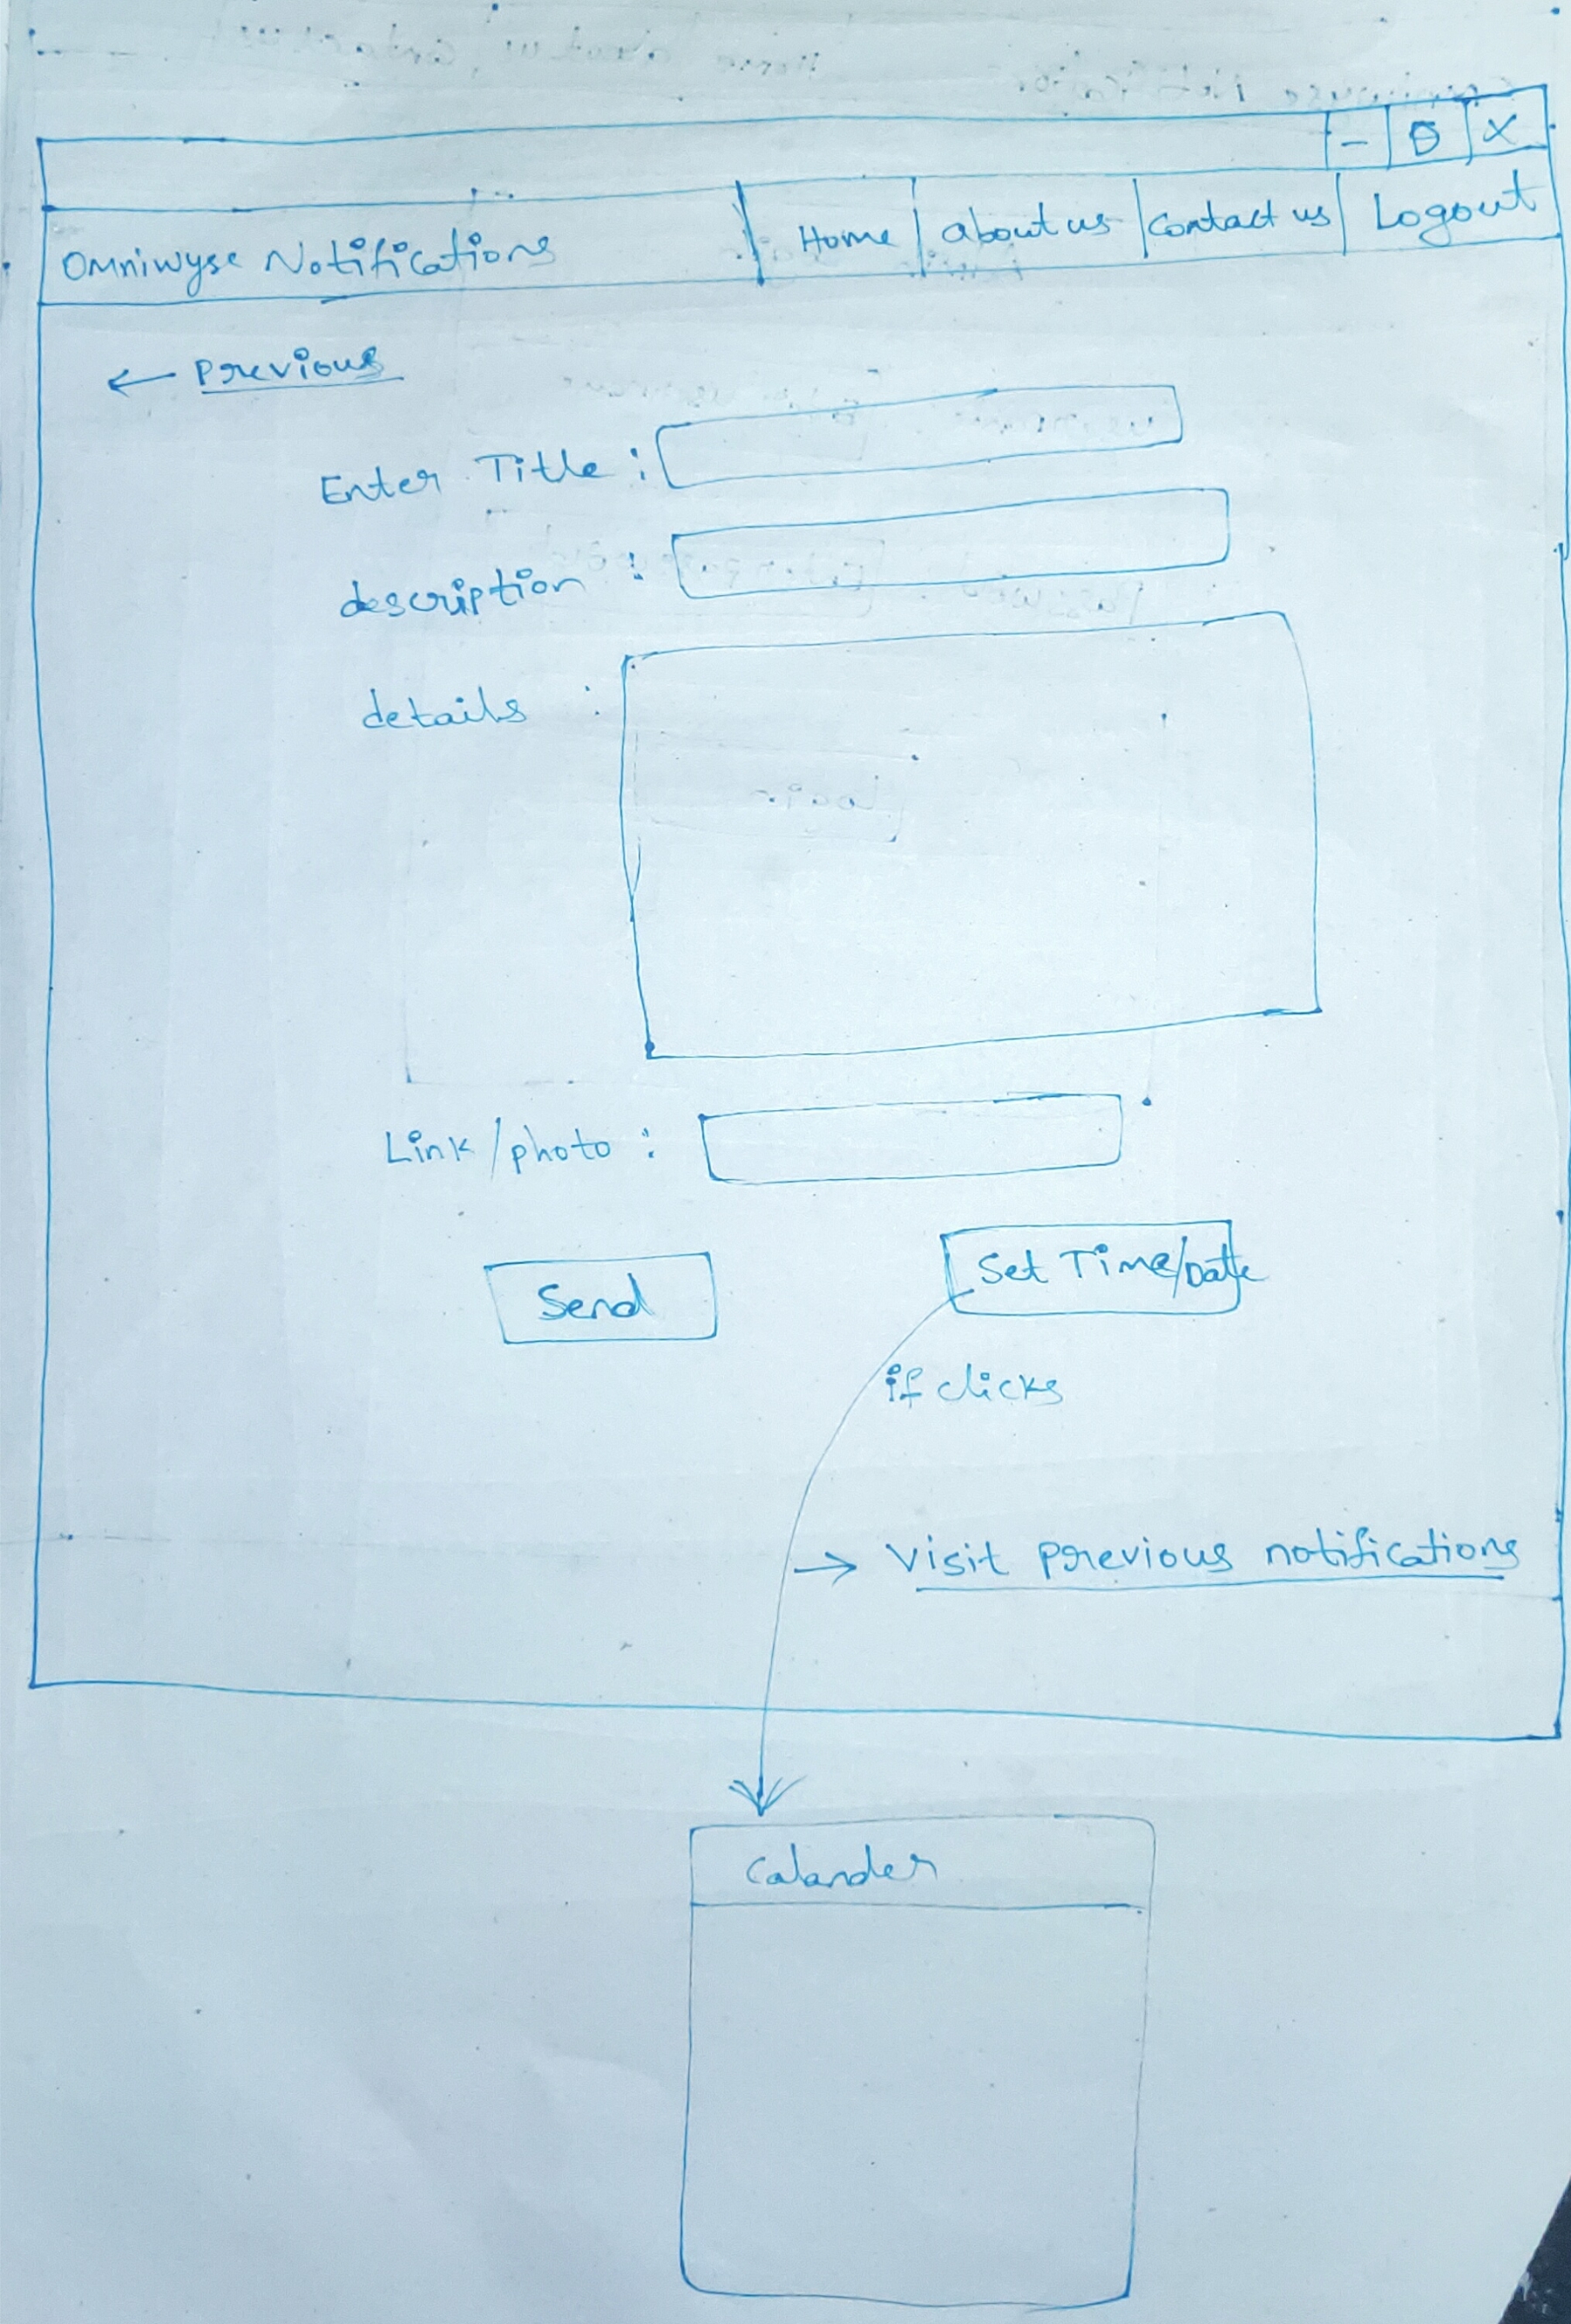 - O X
Omniwyse Notifications Home about us contact us Logout
← Previous
Enter Title :
description :
details :
Link/photo :
Send Set Time/Date
if clicks
→ Visit previous notifications
Calander